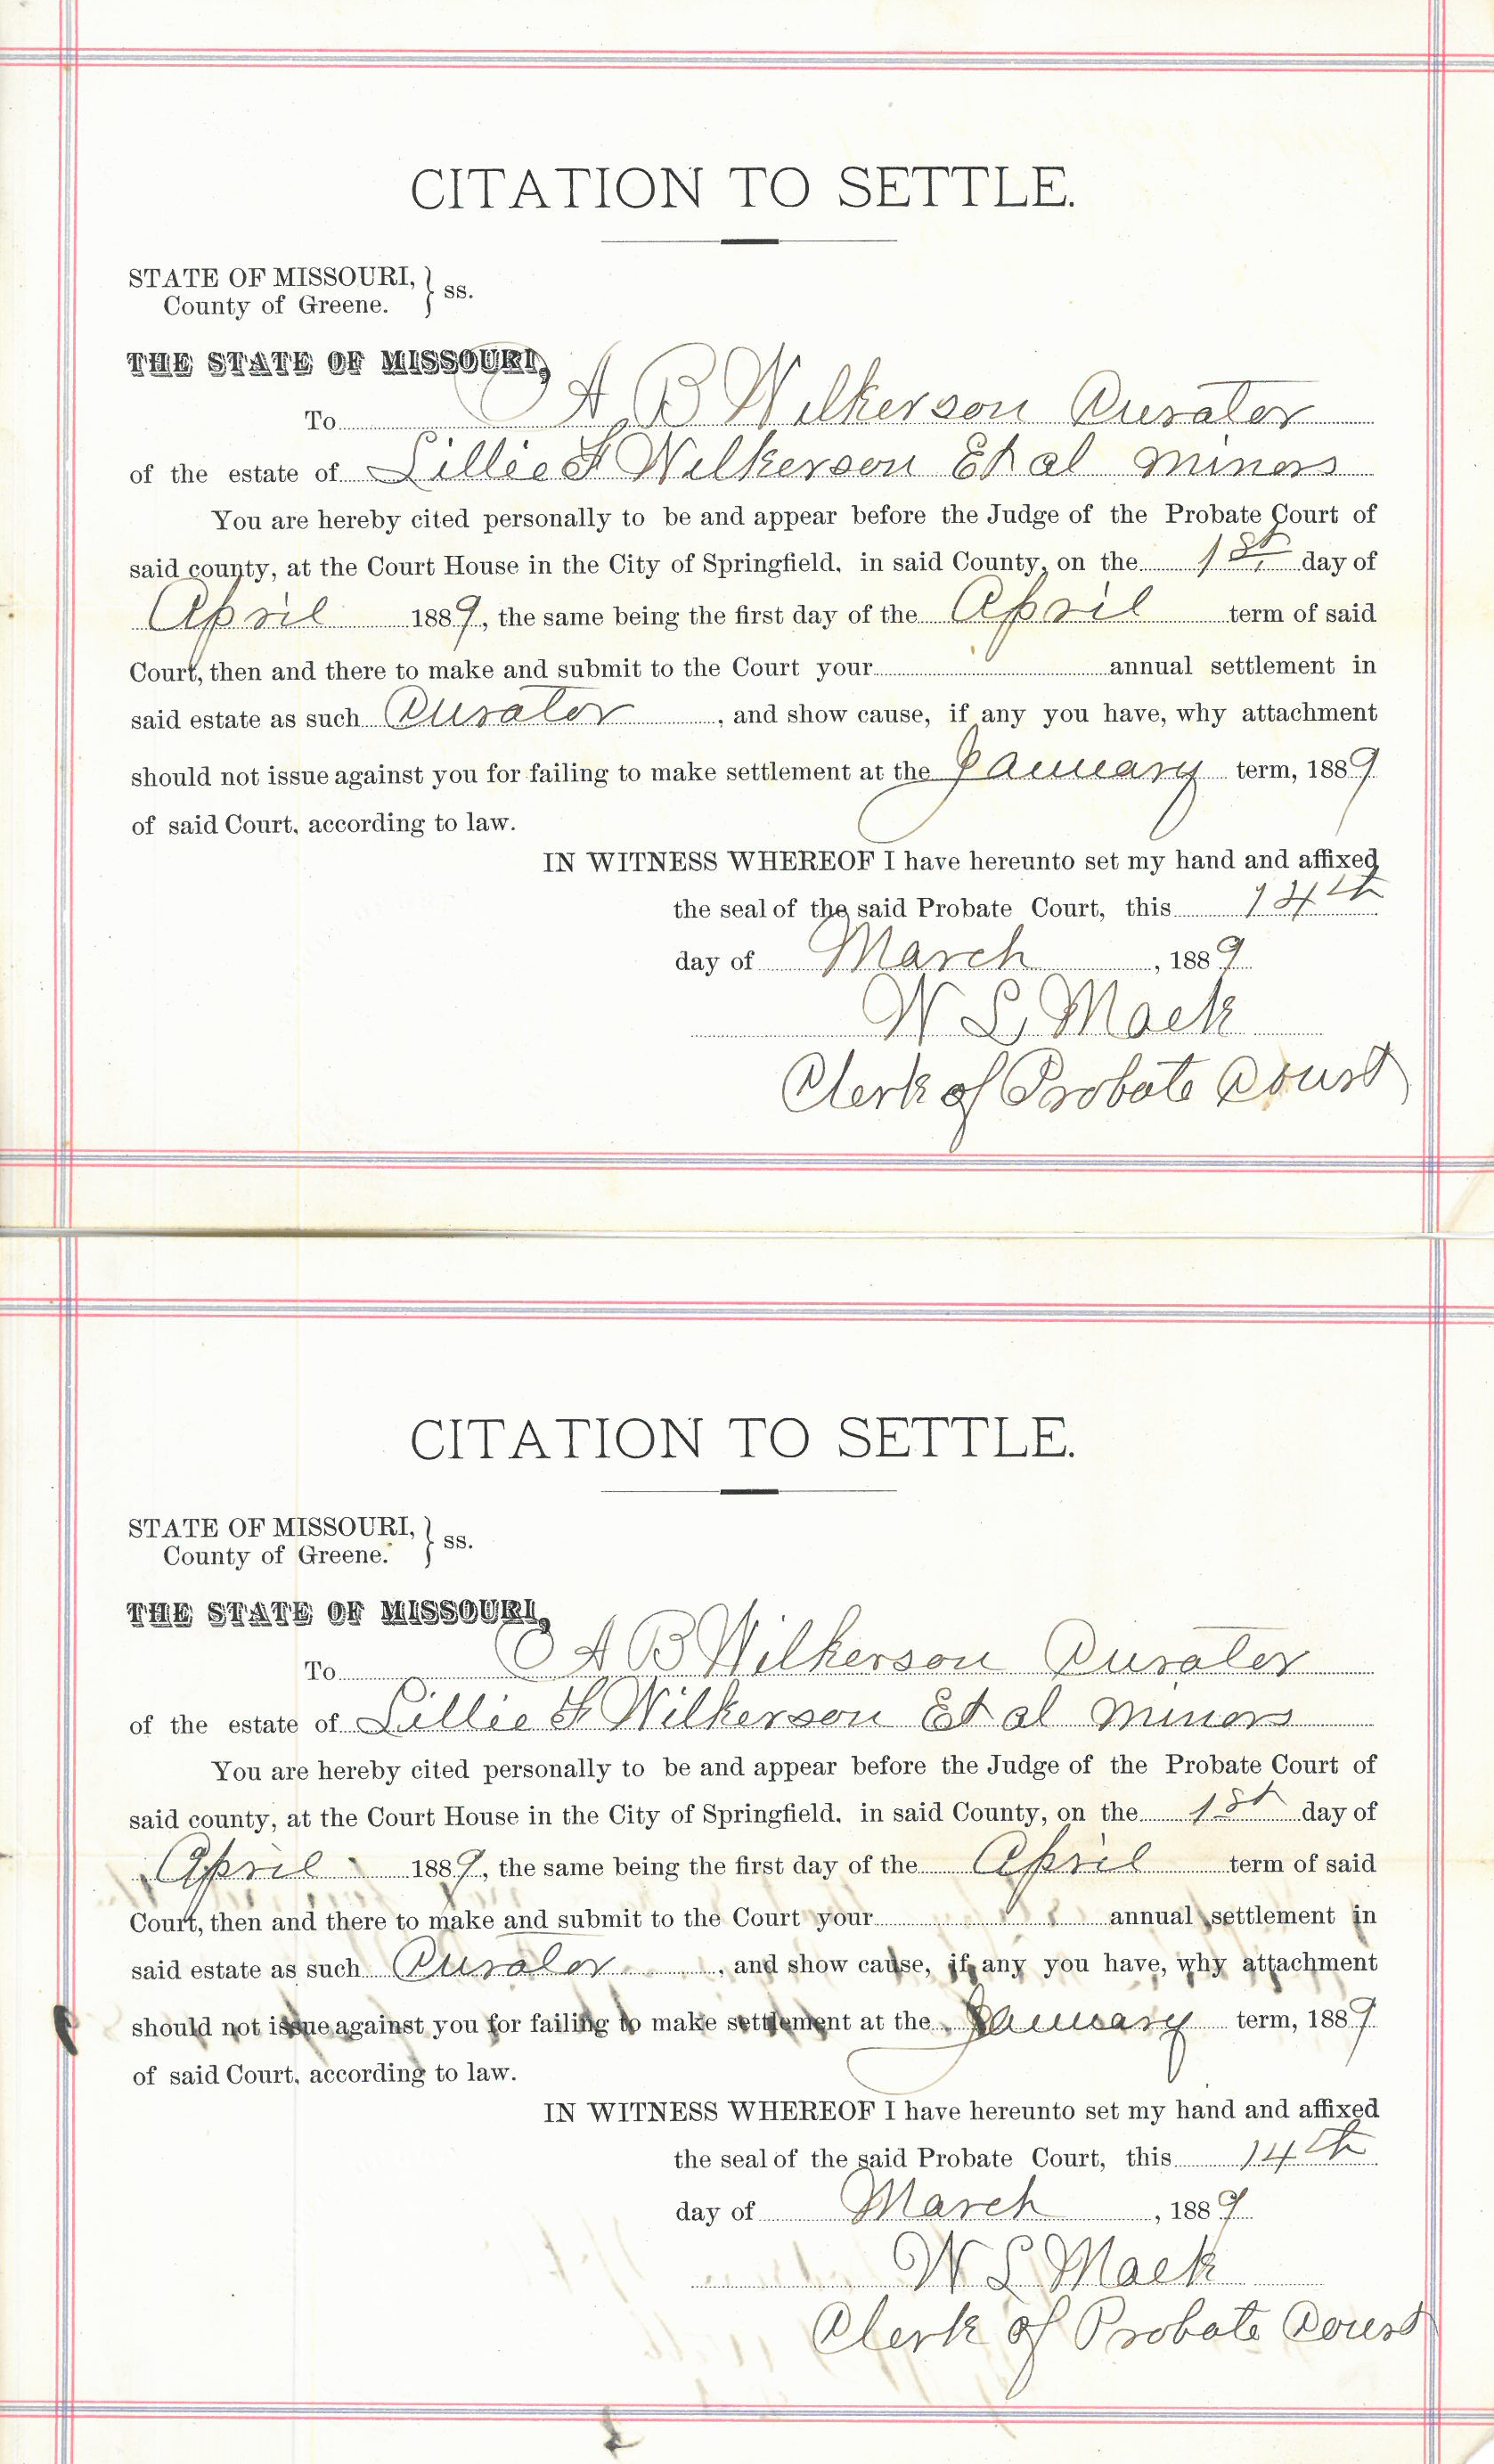 CITATION TO SETTLE.
STATE OF MISSOURI, } ss.
County of Greene.
THE STATE OF MISSOURI,
To A B Wilkerson Curator
of the estate of Lillie F Wilkerson Et al minors
You are hereby cited personally to be and appear before the Judge of the Probate Court of
said county, at the Court House in the City of Springfield, in said County, on the 1st day of
April 1889, the same being the first day of the April term of said
Court, then and there to make and submit to the Court your annual settlement in
said estate as such Curator, and show cause, if any you have, why attachment
should not issue against you for failing to make settlement at the January term, 1889
of said Court, according to law.
IN WITNESS WHEREOF I have hereunto set my hand and affixed
the seal of the said Probate Court, this 14th
day of March, 1889
W L Mack
Clerk of Probate Court
CITATION TO SETTLE.
STATE OF MISSOURI, } ss.
County of Greene.
THE STATE OF MISSOURI,
To A B Wilkerson Curator
of the estate of Lillie F Wilkerson Et al minors
You are hereby cited personally to be and appear before the Judge of the Probate Court of
said county, at the Court House in the City of Springfield, in said County, on the 1st day of
April 1889, the same being the first day of the April term of said
Court, then and there to make and submit to the Court your annual settlement in
said estate as such Curator, and show cause, if any you have, why attachment
should not issue against you for failing to make settlement at the January term, 1889
of said Court, according to law.
IN WITNESS WHEREOF I have hereunto set my hand and affixed
the seal of the said Probate Court, this 14th
day of March, 1889
W L Mack
Clerk of Probate Court